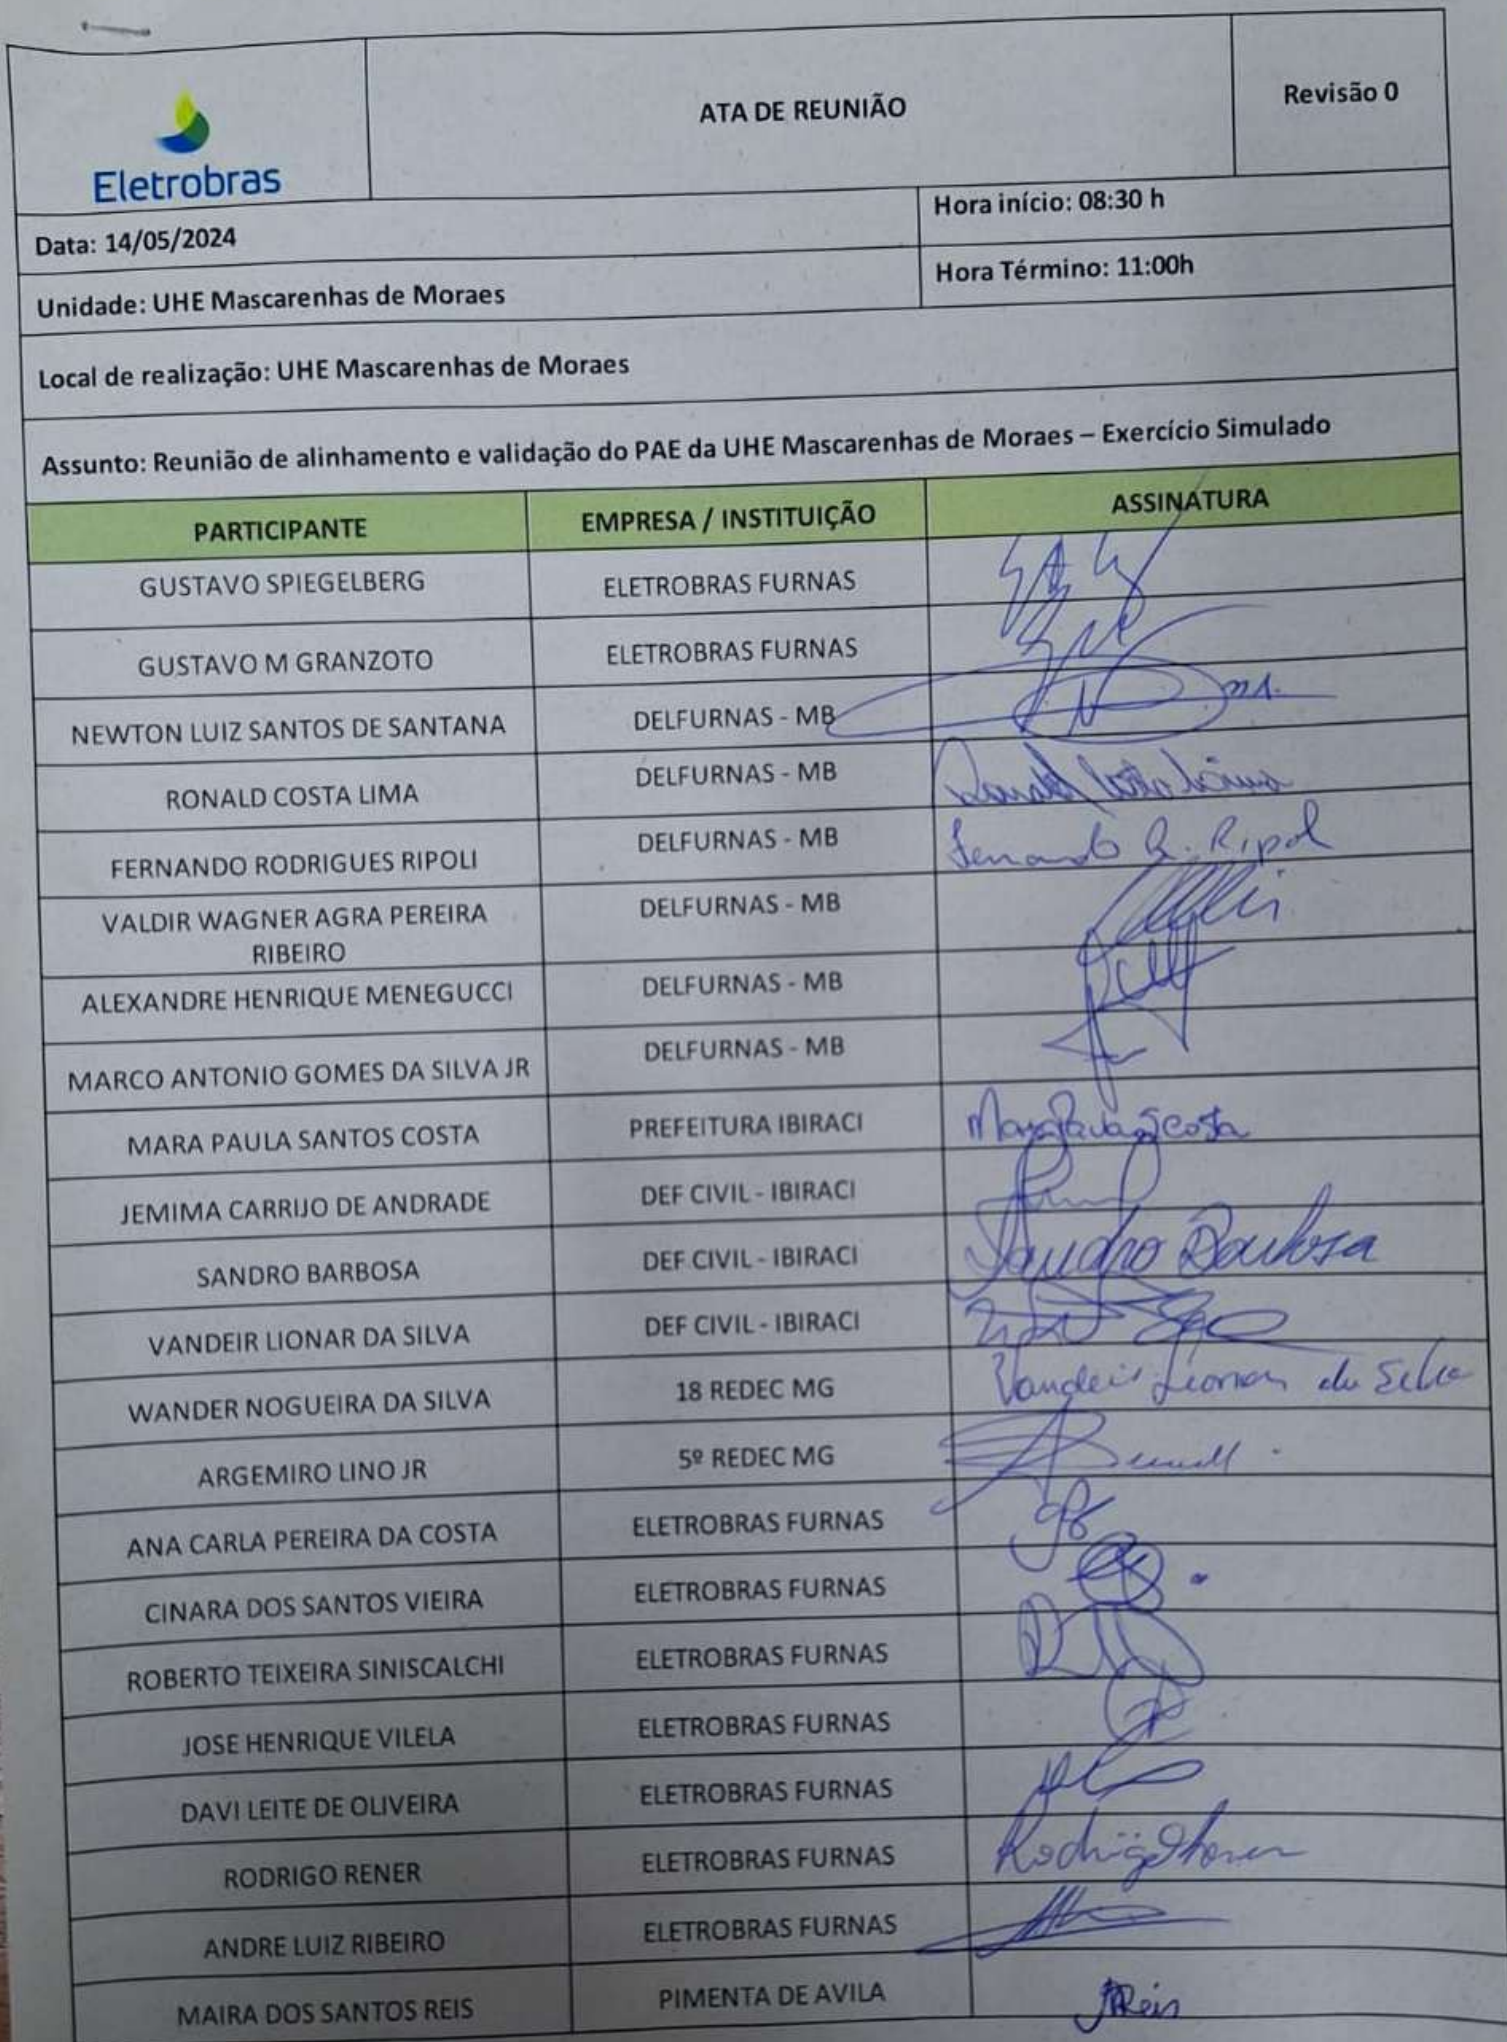 Eletrobras
ATA DE REUNIÃO
Revisão 0
Data: 14/05/2024
Hora início: 08:30 h
Unidade: UHE Mascarenhas de Moraes
Hora Término: 11:00h
Local de realização: UHE Mascarenhas de Moraes
Assunto: Reunião de alinhamento e validação do PAE da UHE Mascarenhas de Moraes – Exercício Simulado
PARTICIPANTE EMPRESA / INSTITUIÇÃO ASSINATURA
GUSTAVO SPIEGELBERG ELETROBRAS FURNAS
GUSTAVO M GRANZOTO ELETROBRAS FURNAS
NEWTON LUIZ SANTOS DE SANTANA DELFURNAS - MB
RONALD COSTA LIMA DELFURNAS - MB Ronald Costa Lima
FERNANDO RODRIGUES RIPOLI DELFURNAS - MB Fernando R. Ripoli
VALDIR WAGNER AGRA PEREIRA
RIBEIRO
DELFURNAS - MB
ALEXANDRE HENRIQUE MENEGUCCI DELFURNAS - MB
MARCO ANTONIO GOMES DA SILVA JR DELFURNAS - MB
MARA PAULA SANTOS COSTA PREFEITURA IBIRACI Mara Paula S Costa
JEMIMA CARRIJO DE ANDRADE DEF CIVIL - IBIRACI
SANDRO BARBOSA DEF CIVIL - IBIRACI Sandro Barbosa
VANDEIR LIONAR DA SILVA DEF CIVIL - IBIRACI
WANDER NOGUEIRA DA SILVA 18 REDEC MG Vandeir Lionar da Silva
ARGEMIRO LINO JR 5º REDEC MG
ANA CARLA PEREIRA DA COSTA ELETROBRAS FURNAS
CINARA DOS SANTOS VIEIRA ELETROBRAS FURNAS
ROBERTO TEIXEIRA SINISCALCHI ELETROBRAS FURNAS
JOSE HENRIQUE VILELA ELETROBRAS FURNAS
DAVI LEITE DE OLIVEIRA ELETROBRAS FURNAS
RODRIGO RENER ELETROBRAS FURNAS Rodrigo Rener
ANDRE LUIZ RIBEIRO ELETROBRAS FURNAS
MAIRA DOS SANTOS REIS PIMENTA DE AVILA